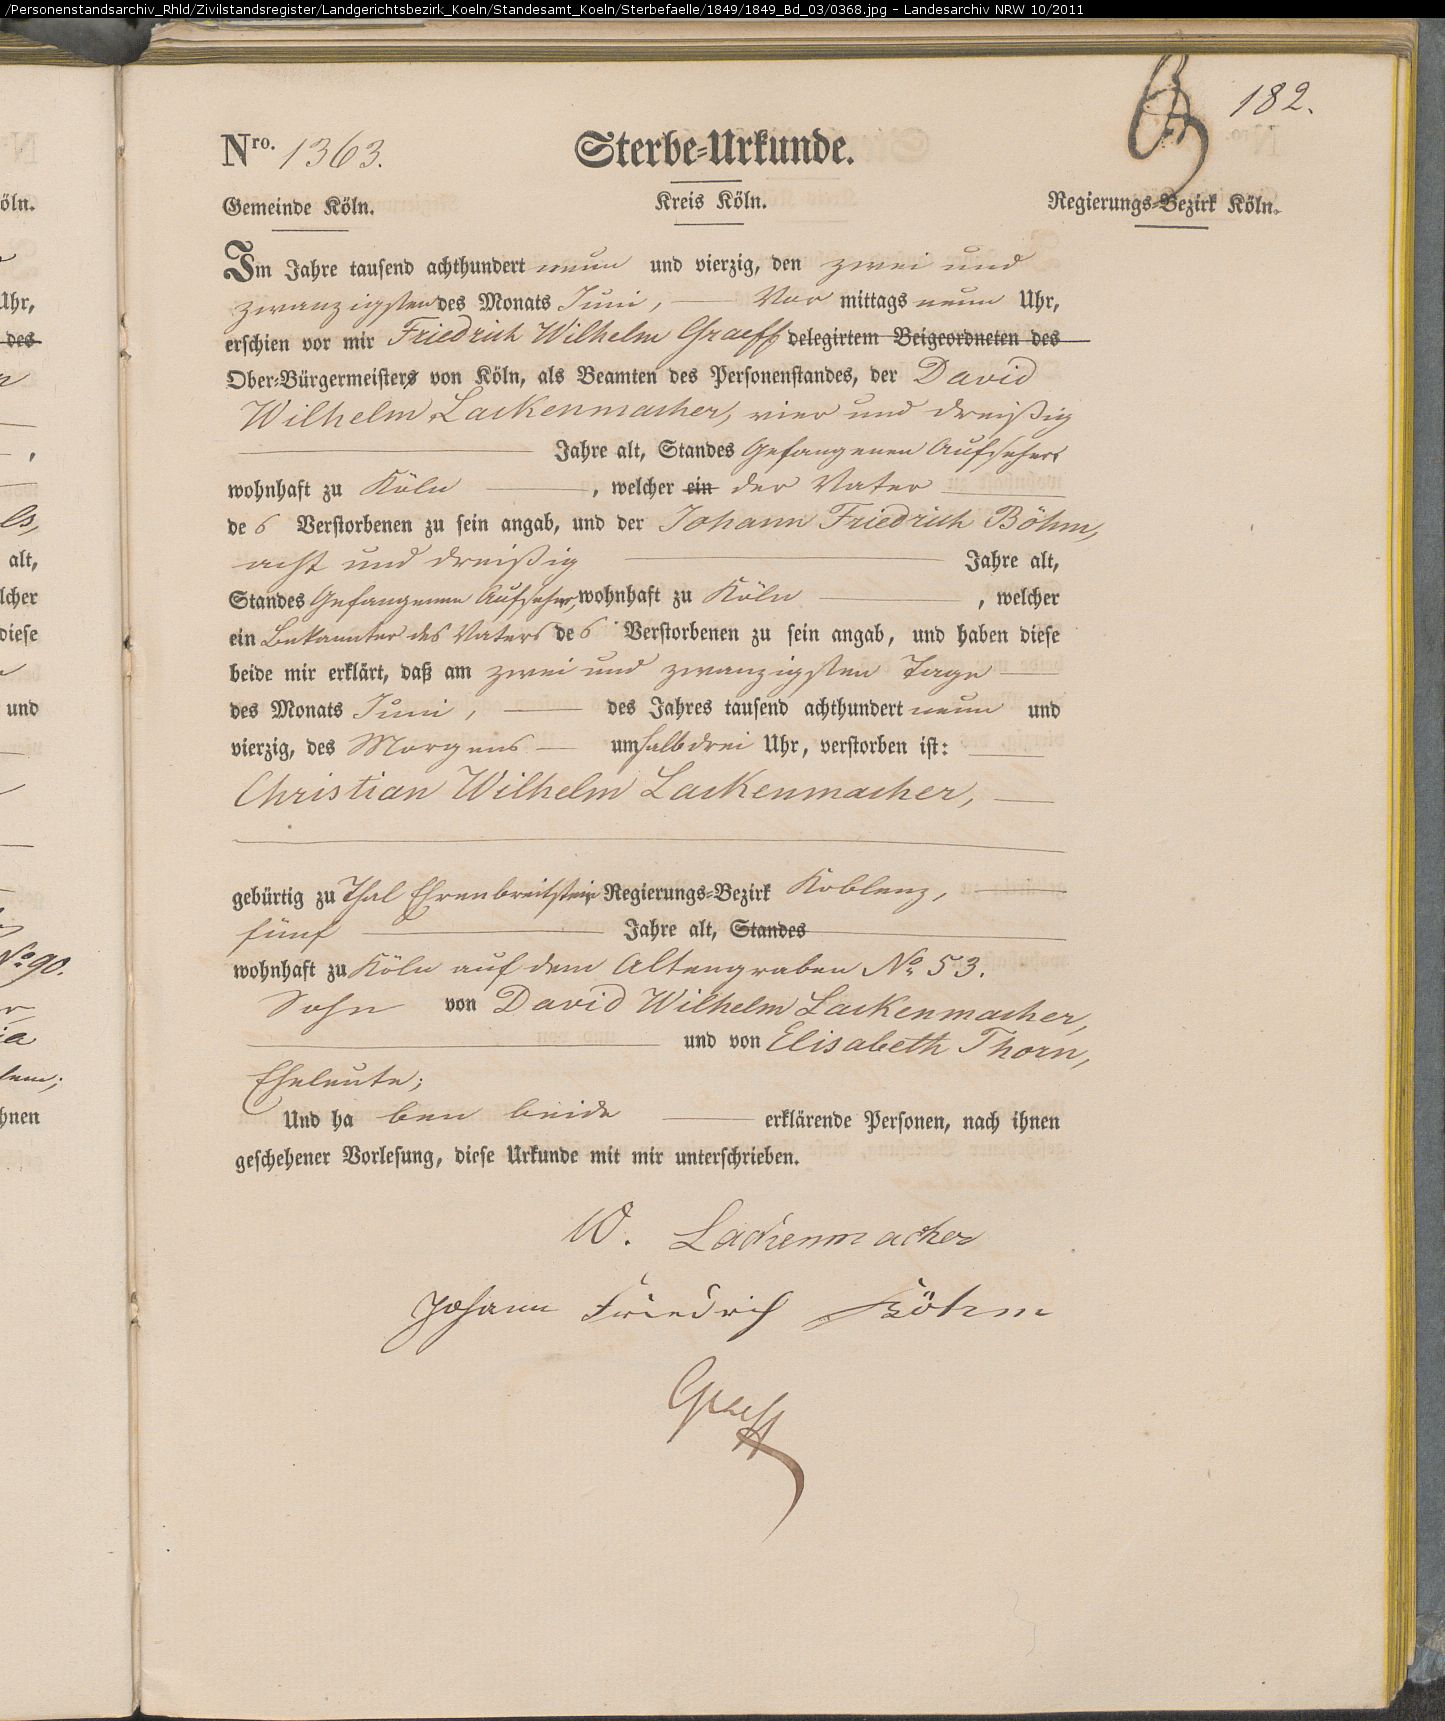 /Personenstandsarchiv_Rhld/Zivilstandsregister/Landgerichtsbezirk_Koeln/Standesamt_Koeln/Sterbefaelle/1849/1849_Bd_03/0368.jpg - Landesarchiv NRW 10/2011
182.
Nro. 1363. Sterbe-Urkunde.
Gemeinde Köln. Kreis Köln. Regierungs-Bezirk Köln.
Im Jahre tausend achthundert neun und vierzig, den zwei und
zwanzigsten des Monats Juni, Vor mittags neun Uhr,
erschien vor mir Friedrich Wilhelm Graeff delegirtem Beigeordneten des
Ober-Bürgermeisters von Köln, als Beamten des Personenstandes, der David
Wilhelm Lackenmacher, vier und dreißig
Jahre alt, Standes Gefangenen Aufseher
wohnhaft zu Köln, welcher ein der Vater
des Verstorbenen zu sein angab, und der Johann Friedrich Böhm,
acht und dreißig Jahre alt,
Standes Gefangenen Aufseher, wohnhaft zu Köln, welcher
ein Bekannter des Vaters des Verstorbenen zu sein angab, und haben diese
beide mir erklärt, daß am zwei und zwanzigsten Tage
des Monats Juni, des Jahres tausend achthundert neun und
vierzig, des Morgens um halb drei Uhr, verstorben ist:
Christian Wilhelm Lackenmacher,
gebürtig zu Thal Ehrenbreitstein Regierungs-Bezirk Koblenz,
fünf Jahre alt, Standes
wohnhaft zu Köln auf dem Altengraben No. 53.
Sohn von David Wilhelm Lackenmacher,
und von Elisabeth Thorn,
Eheleute;
Und ha ben beide erklärende Personen, nach ihnen
geschehener Vorlesung, diese Urkunde mit mir unterschrieben.
W. Lackenmacher
Johann Friedrich Böhm
Graeff
öln.
Uhr,
des
alt,
lcher
diese
und
No 90.
hnen